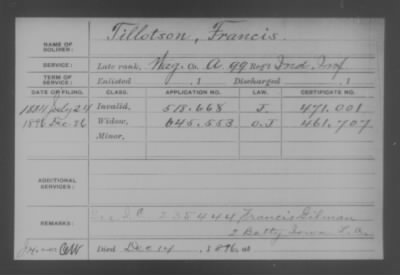 Tillotson, Francis.
NAME OF SOLDIER:
SERVICE: Late rank, Co. A 99 Reg't Ind. Inf.
TERM OF SERVICE: Enlisted , 1 Discharged , 1
DATE OF FILING. CLASS. APPLICATION NO. LAW. CERTIFICATE NO.
1884 July 24 Invalid, 518.668 J. 471.001
1896 Dec. 26 Widow, 645.553 O.J 461.707
Minor,
ADDITIONAL SERVICES:
REMARKS:
C 235444 Francis Gilman
2 Batty Iowa L.A.
Died Dec 14, 1896, at